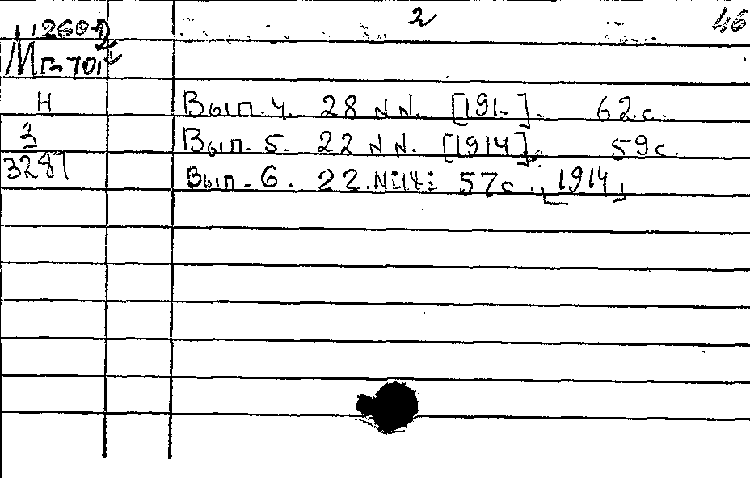 2 46
Мп-701
Н Вып. 4. 28 NN. [191-]. 62 с.
3 Вып. 5. 22 NN. [1914]. 59 с.
3281 Вып. 6. 22. 57 с. [1914]